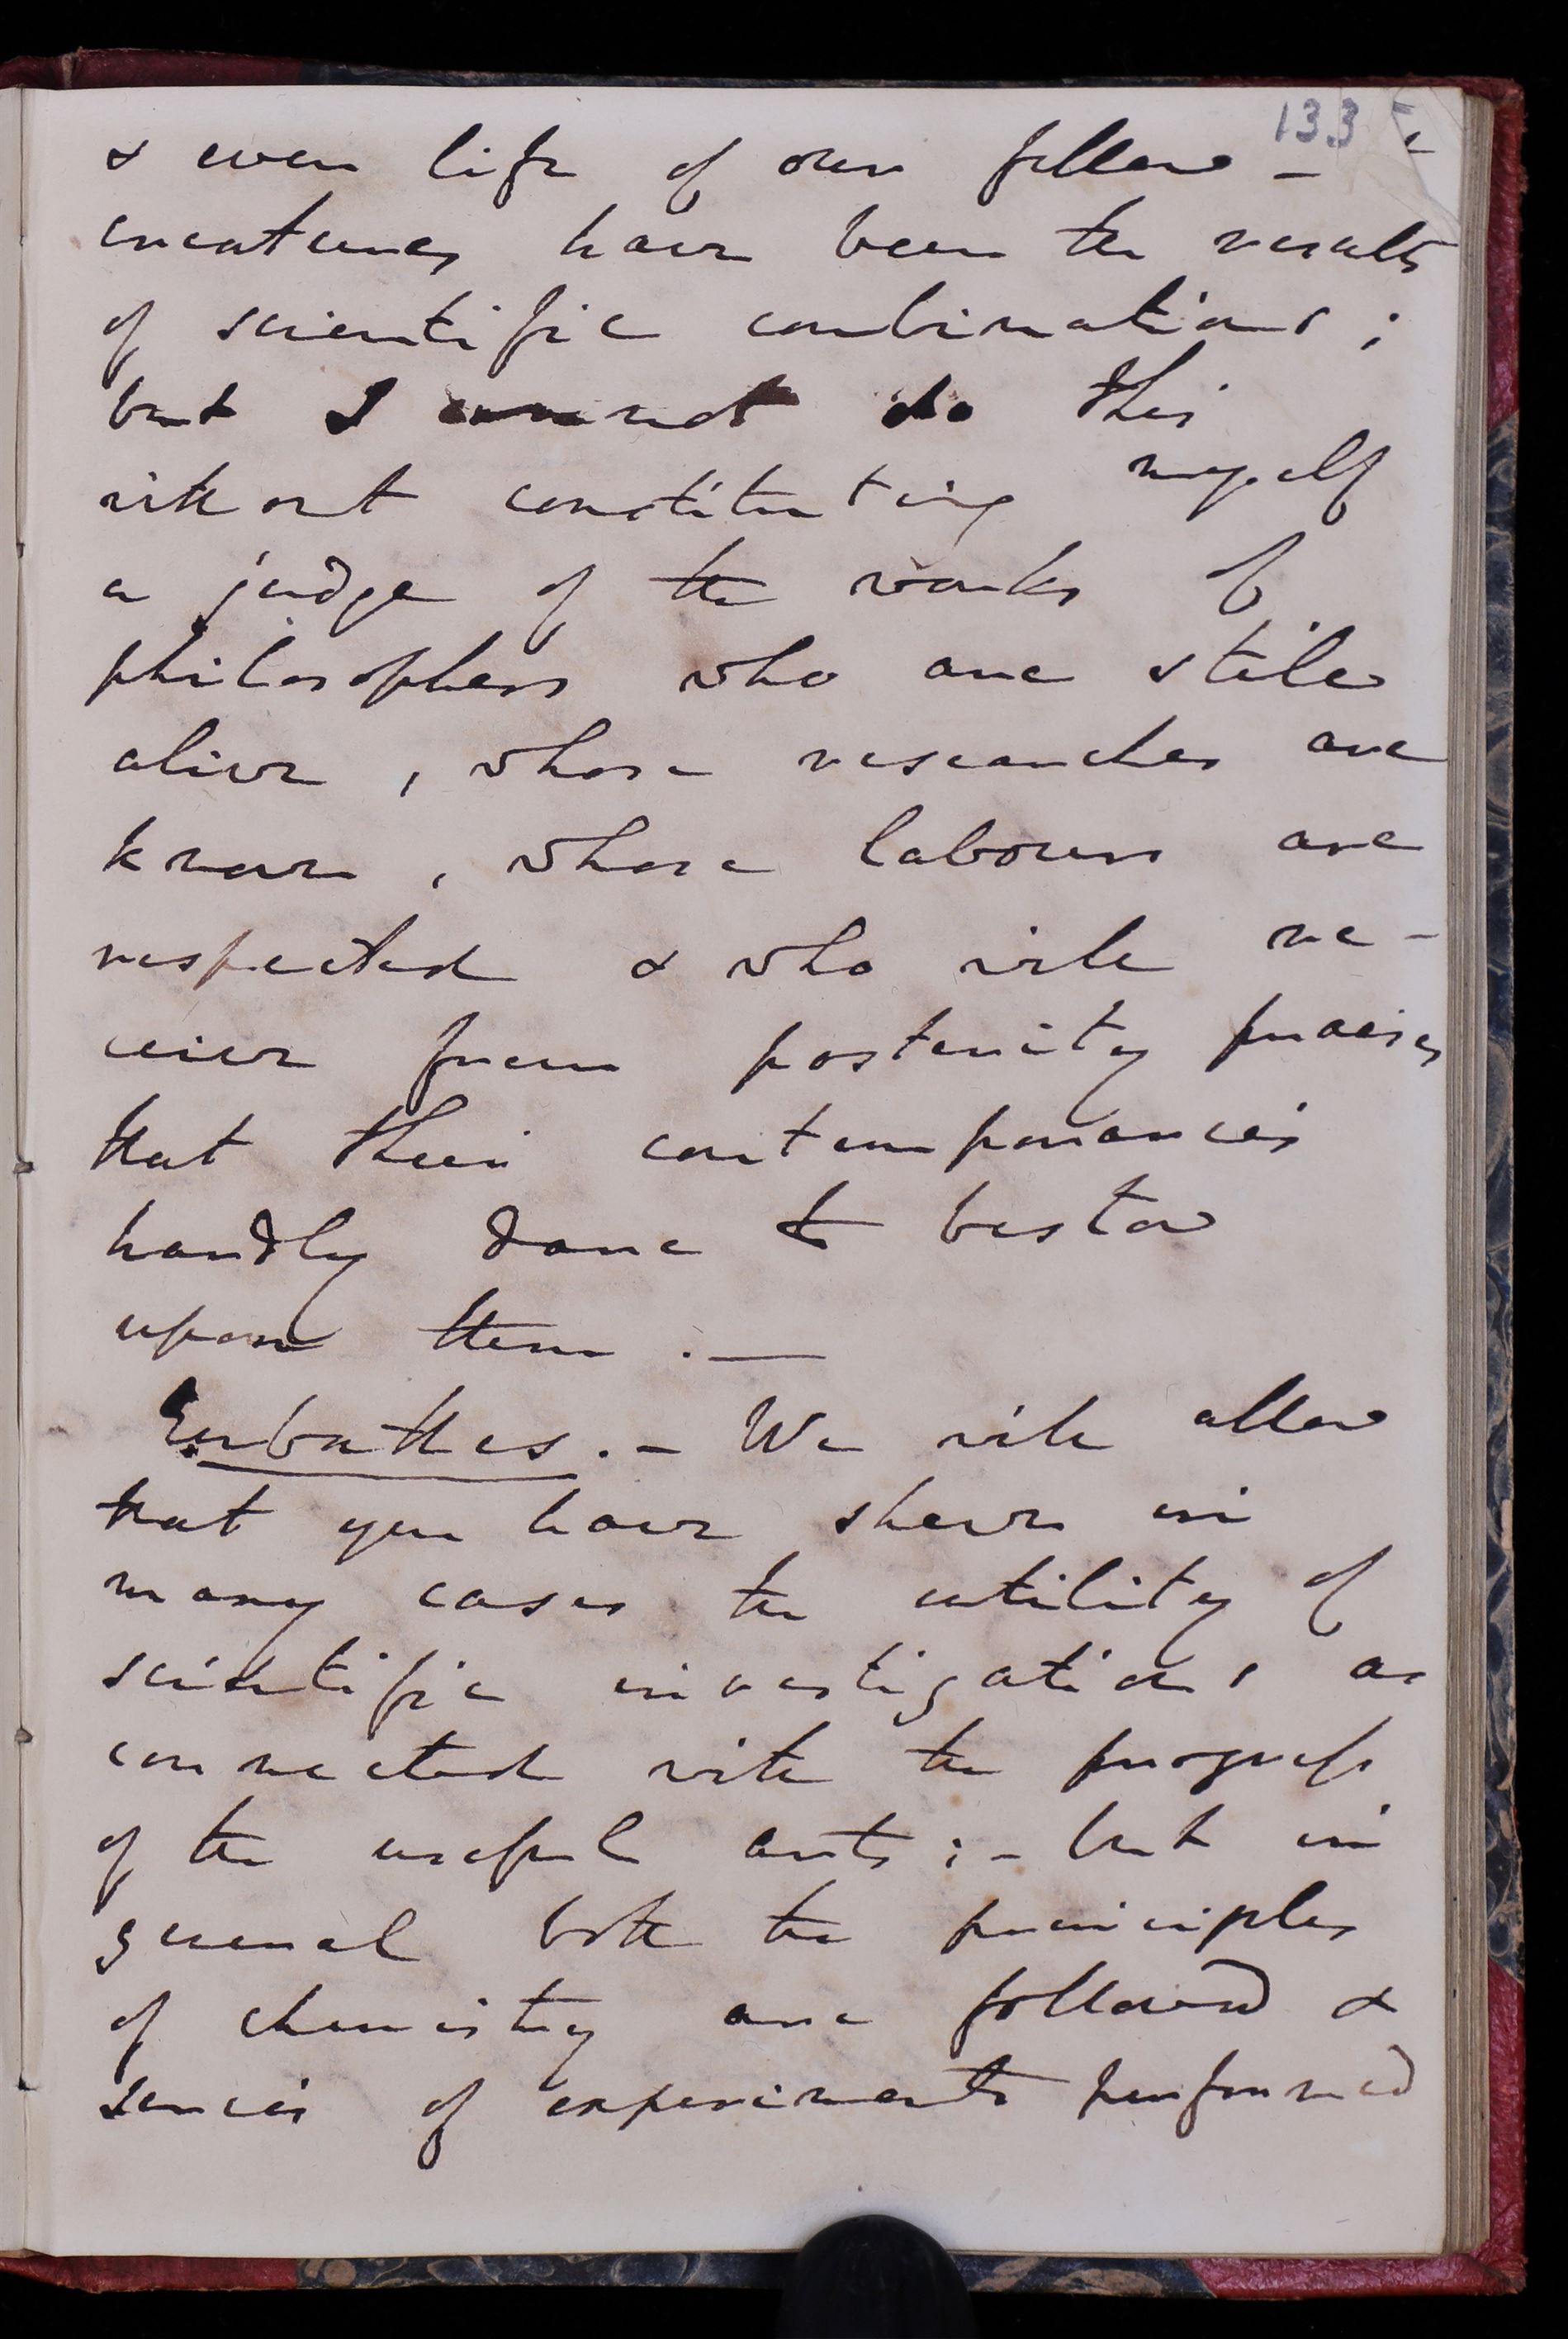 133
& even life of our fellow –
creatures have been the results
of scientific combinations ;
but I cannot do this
without constituting myself
a judge of the works of
philosophers who are still
alive , whose researches are
known , whose labours are
respected & who will re –
ceive from posterity praises
that their contemporaries
hardly dare to bestow
upon them . —
Eubathes . – We will allow
that you have shewn in
many cases the utility of
scientific investigations as
connected with the progress
of the useful arts ; – but in
general both the principles
of chemistry are followed &
series of experiments performed